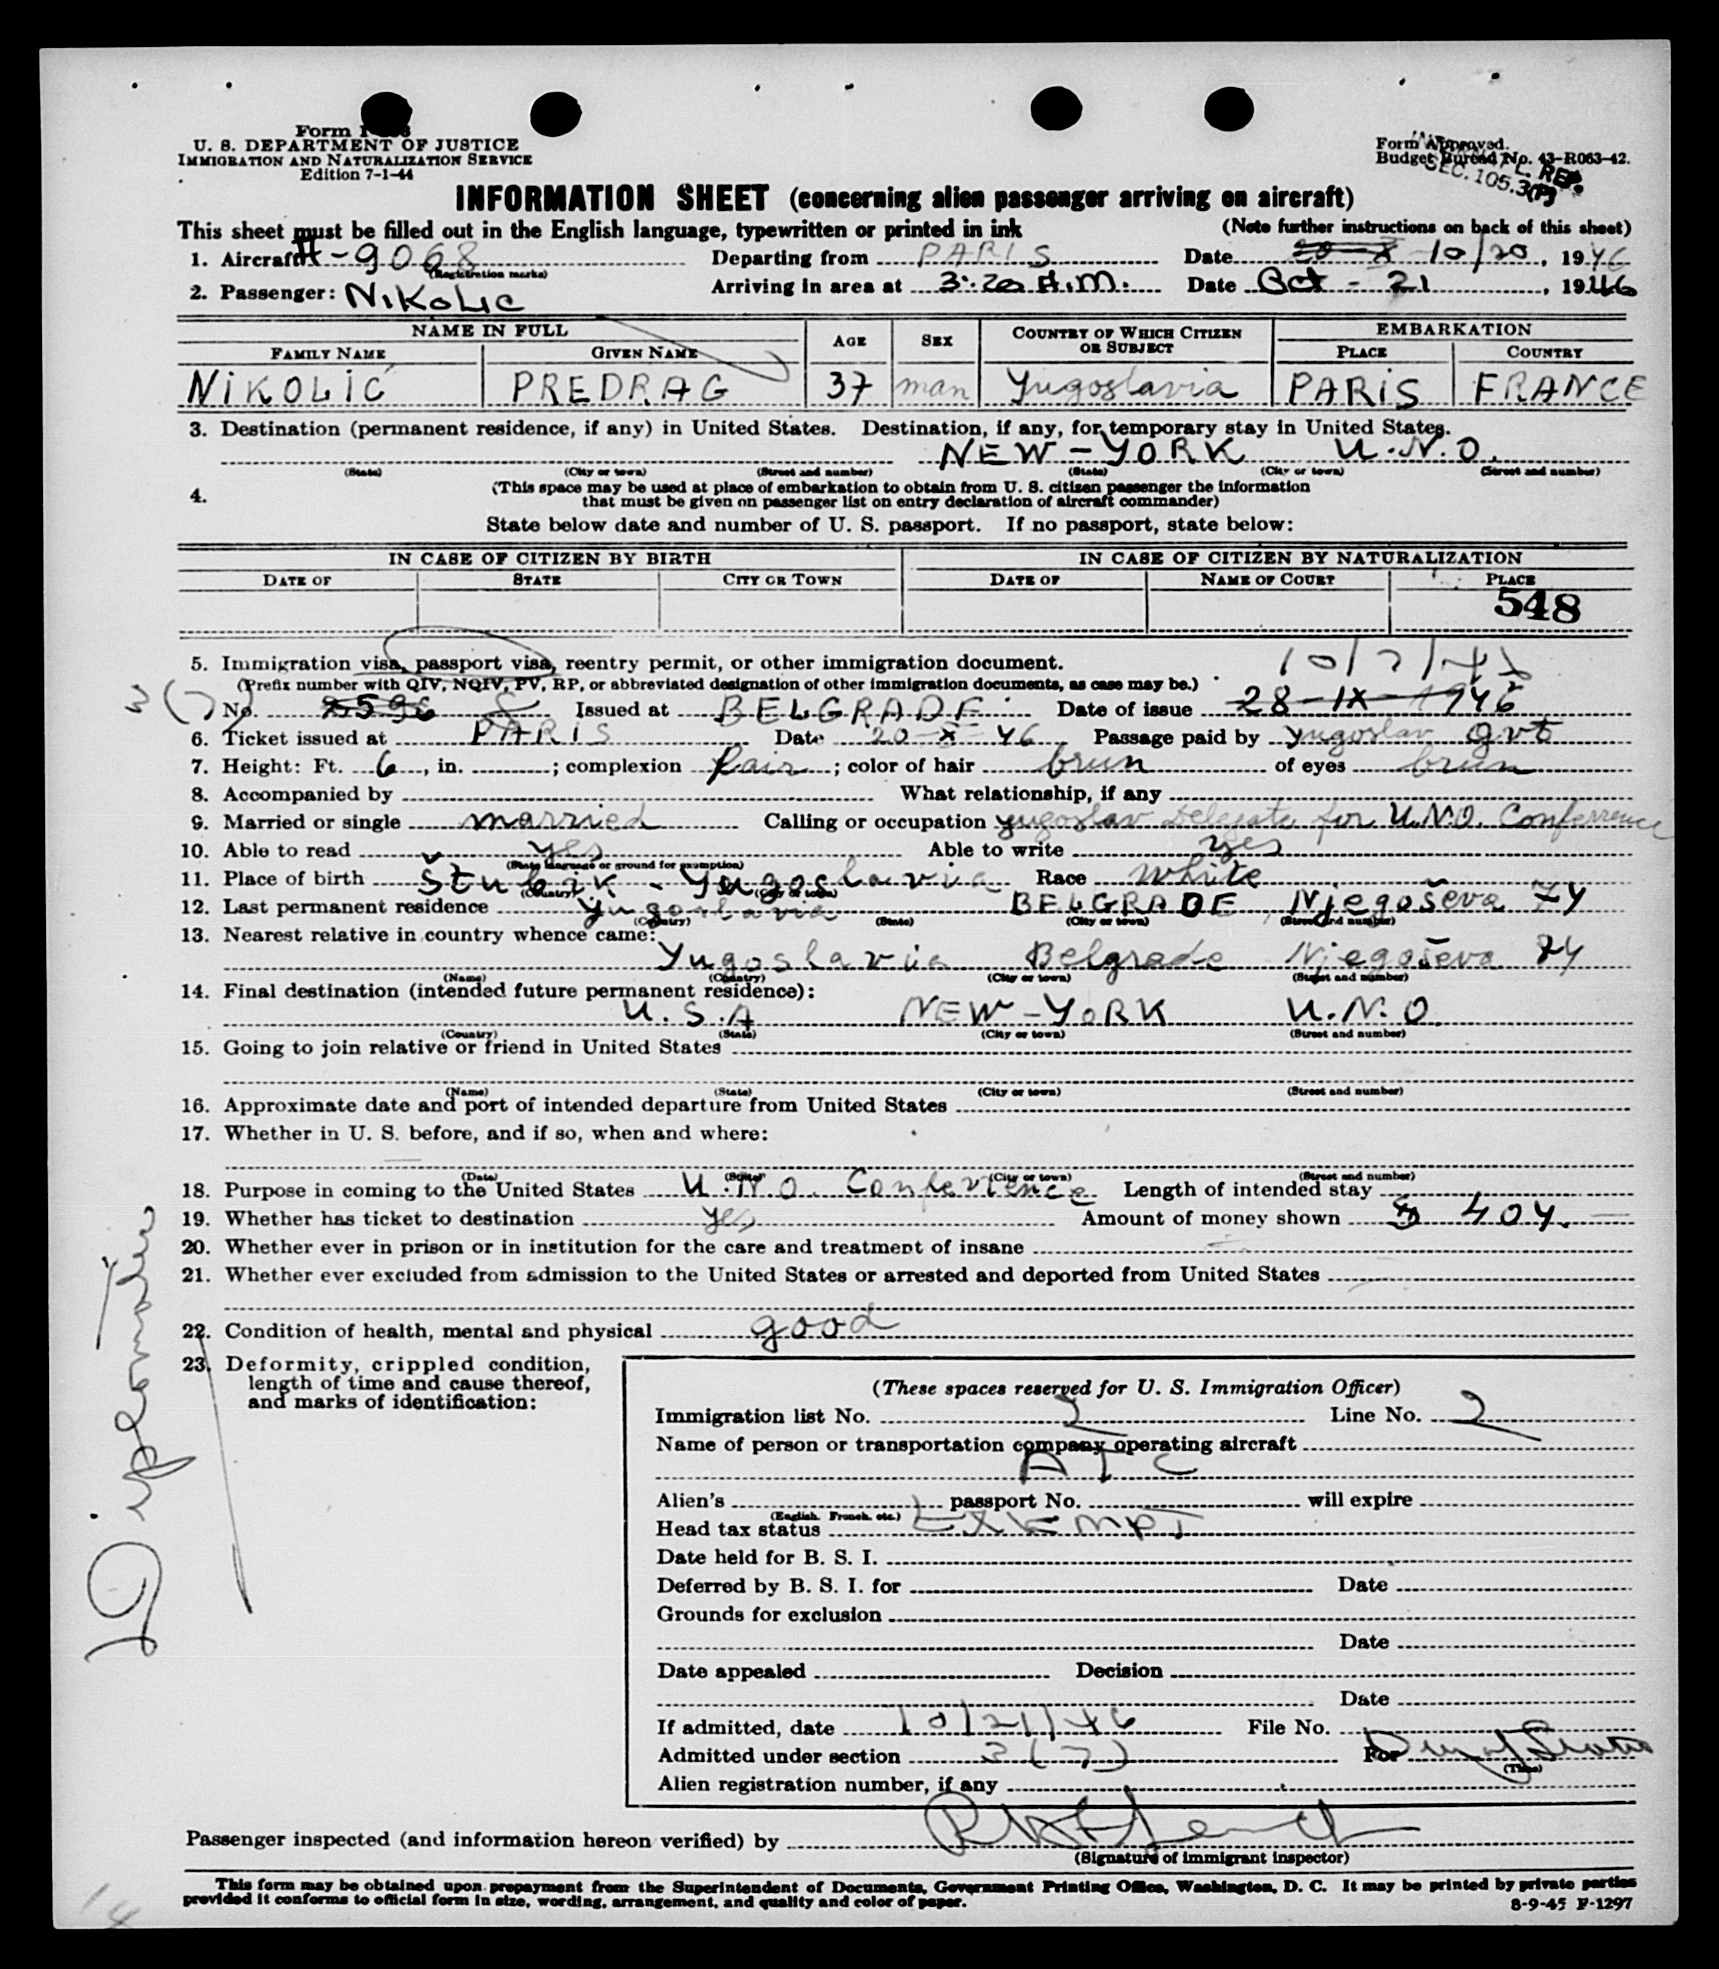 Form I
U. S. DEPARTMENT OF JUSTICE
IMMIGRATION AND NATURALIZATION SERVICE
Edition 7-1-44
Form Approved.
Budget Bureau No. 43-R063-42.
SEC. 105.3(P)
INFORMATION SHEET (concerning alien passenger arriving on aircraft)
This sheet must be filled out in the English language, typewritten or printed in ink (Note further instructions on back of this sheet)
1. Aircraft H-9068 (Registration marks) Departing from PARIS Date 20-X 10/20, 1946
2. Passenger: NIKOLIC Arriving in area at 3:20 A.M. Date Oct - 21, 1946
NAME IN FULL AGE SEX COUNTRY OF WHICH CITIZEN OR SUBJECT EMBARKATION
FAMILY NAME GIVEN NAME PLACE COUNTRY
NIKOLIĆ PREDRAG 37 man Yugoslavia PARIS FRANCE
3. Destination (permanent residence, if any) in United States. Destination, if any, for temporary stay in United States.
NEW-YORK U.N.O.
(State) (City or town) (Street and number) (State) (City or town) (Street and number)
4. (This space may be used at place of embarkation to obtain from U. S. citizen passenger the information
that must be given on passenger list on entry declaration of aircraft commander)
State below date and number of U. S. passport. If no passport, state below:
IN CASE OF CITIZEN BY BIRTH IN CASE OF CITIZEN BY NATURALIZATION
DATE OF STATE CITY OR TOWN DATE OF NAME OF COURT PLACE
548
5. Immigration visa, passport visa, reentry permit, or other immigration document.
(Prefix number with QIV, NQIV, PV, RP, or abbreviated designation of other immigration documents, as case may be.)
3(7) No. 2596 Issued at BELGRADE Date of issue 28-IX-1946
6. Ticket issued at PARIS Date 20-X-46 Passage paid by Yugoslav gvt
7. Height: Ft. 6, in. ; complexion fair ; color of hair brun of eyes brun
8. Accompanied by What relationship, if any
9. Married or single married Calling or occupation Yugoslav Delegate for U.N.O. Conferrence
10. Able to read yes Able to write yes
(State language or ground for exemption)
11. Place of birth Štubik - Yugoslavia Race White
(Country) (City or town)
12. Last permanent residence Yugoslavia BELGRADE, Njegoševa 74
(Country) (State) (City or town) (Street and number)
13. Nearest relative in country whence came:
Yugoslavia Belgrade Njegoševa 74
(Name) (Country) (City or town) (Street and number)
14. Final destination (intended future permanent residence):
U.S.A NEW-YORK U.N.O.
(Country) (State) (City or town) (Street and number)
15. Going to join relative or friend in United States
(Name) (State) (City or town) (Street and number)
16. Approximate date and port of intended departure from United States
17. Whether in U. S. before, and if so, when and where:
(Date) (State) (City or town) (Street and number)
18. Purpose in coming to the United States U.N.O. Conferrence Length of intended stay
19. Whether has ticket to destination yes Amount of money shown $ 404.—
20. Whether ever in prison or in institution for the care and treatment of insane
21. Whether ever excluded from admission to the United States or arrested and deported from United States
22. Condition of health, mental and physical good
23. Deformity, crippled condition,
length of time and cause thereof,
and marks of identification:
Diplomatic
(These spaces reserved for U. S. Immigration Officer)
Immigration list No. 2 Line No. 2
Name of person or transportation company operating aircraft
ATC
Alien's passport No. will expire
(English, French, etc.)
Head tax status EXEMPT
Date held for B. S. I.
Deferred by B. S. I. for Date
Grounds for exclusion
Date
Date appealed Decision
Date
If admitted, date 10/21/46 File No.
Admitted under section 3(7) For Dur of Status
(Time)
Alien registration number, if any
Passenger inspected (and information hereon verified) by
(Signature of immigrant inspector)
This form may be obtained upon prepayment from the Superintendent of Documents, Government Printing Office, Washington, D. C. It may be printed by private parties
provided it conforms to official form in size, wording, arrangement, and quality and color of paper. 8-9-45 F-1297